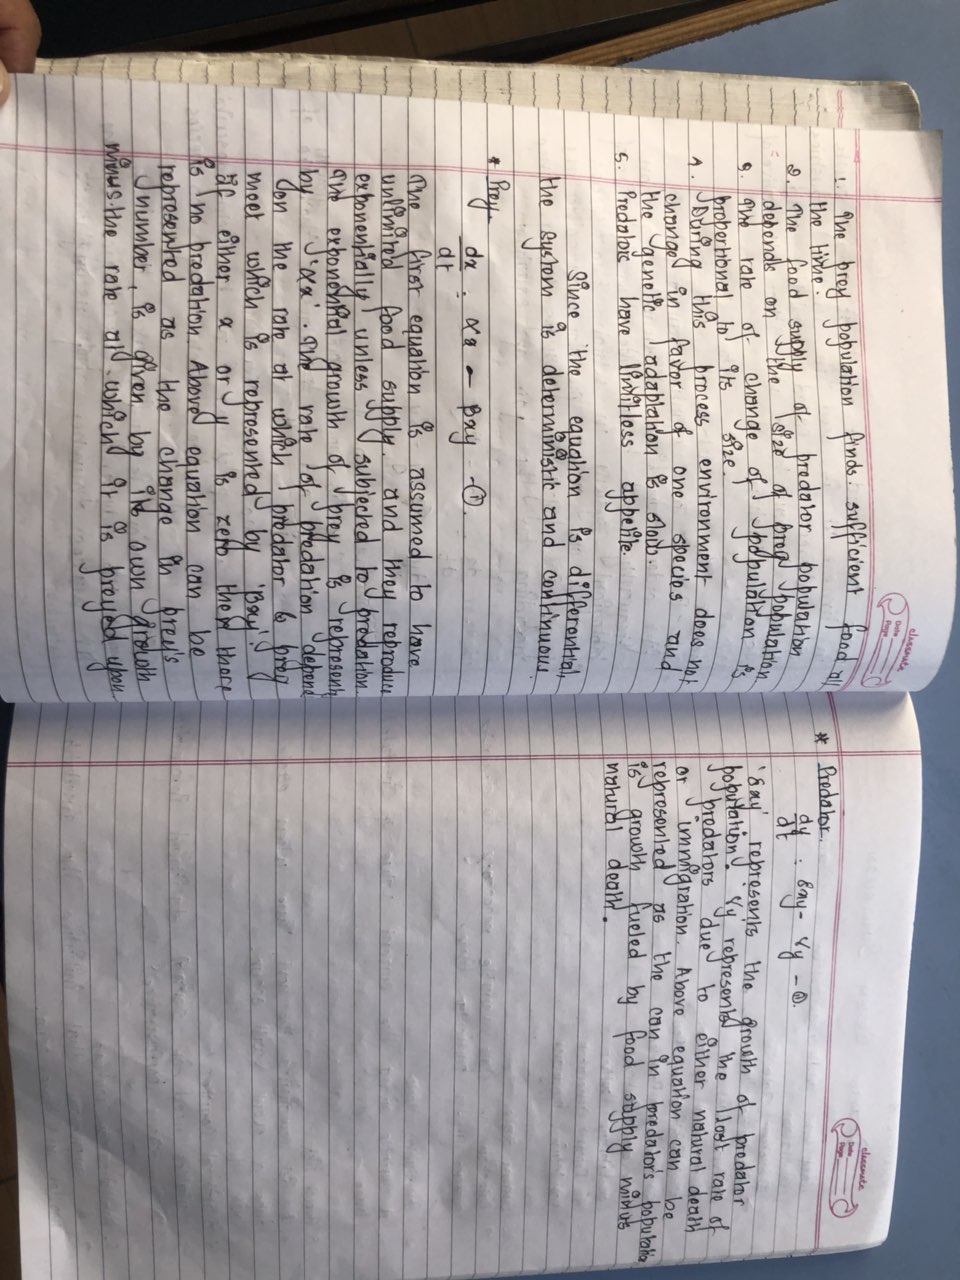 classmate
Date
Page
1. The prey population finds sufficient food all
the time.
2. The food supply of predator population
depends on the size of prey population
3. The rate of change of population is
proportional to its size.
4. During this process environment does not
change in favor of one species and
the genetic adaptation is slow.
5. Predators have limitless appetite.
Since the equation is differential,
the system is deterministic and continuous.
* Prey
dx/dt = αx - βxy - ①.
The first equation is assumed to have
unlimited food supply, and they reproduce
exponentially unless subjected to predation.
The exponential growth of prey is represent
by 'αx'. The rate of predation depend
on the rate at which predator & prey
meet which is represented by 'βxy'.
If either x or y is zero then there
is no predation. Above equation can be
represented as the change in prey's
number, is given by its own growth
minus the rate at which it is preyed upon
classmate
Date
Page
* Predator.
dy/dt = δxy - γy - ②.
'δxy' represents the growth of predator
population. γy represents the loat rate of
predators due to either natural death
or immigration. Above equation can be
represented as the can in predator's population
is growth fueled by food supply minus
natural death.